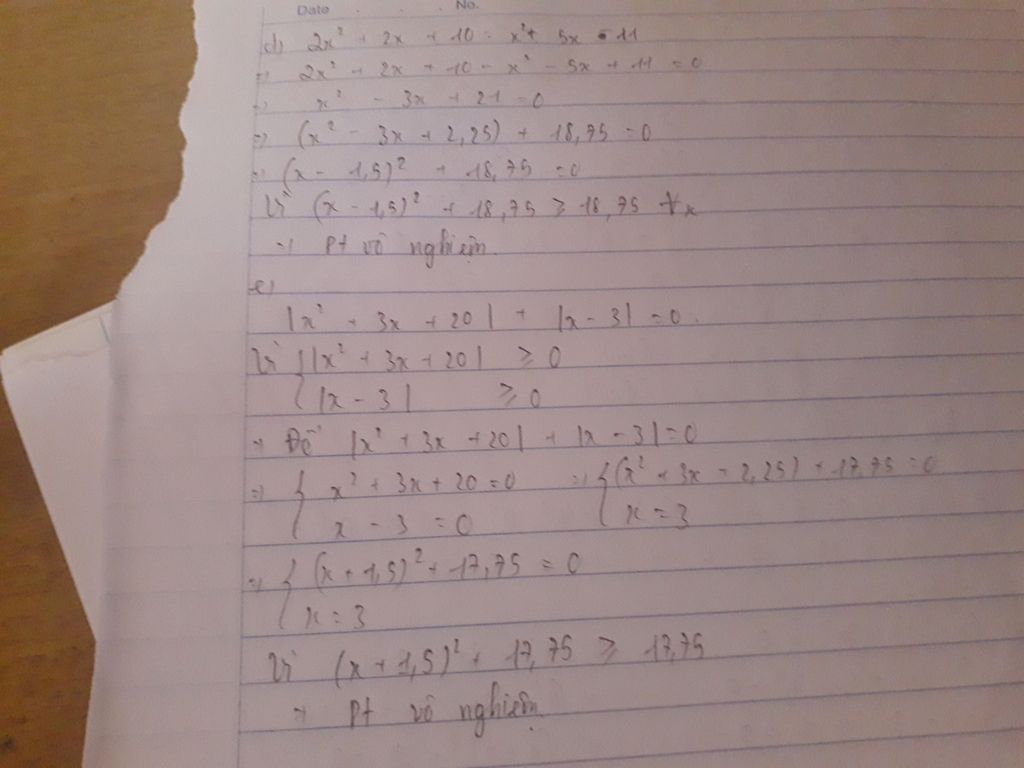 Date . . . No.
d) 2x² + 2x + 10 = x² + 5x - 11
=> 2x² + 2x + 10 - x² - 5x + 11 = 0
=> x² - 3x + 21 = 0
=> (x² - 3x + 2,25) + 18,75 = 0
=> (x - 1,5)² + 18,75 = 0
Vì (x - 1,5)² + 18,75 ≥ 18,75 ∀x
=> Pt vô nghiệm.
e)
|x² + 3x + 20| + |x - 3| = 0.
Vì { |x² + 3x + 20| ≥ 0
|x - 3| ≥ 0
=> Để |x² + 3x + 20| + |x - 3| = 0
=> { x² + 3x + 20 = 0 => { (x² + 3x + 2,25) + 17,75 = 0
x - 3 = 0 x = 3
=> { (x + 1,5)² + 17,75 = 0
x = 3
Vì (x + 1,5)² + 17,75 ≥ 17,75
=> Pt vô nghiệm